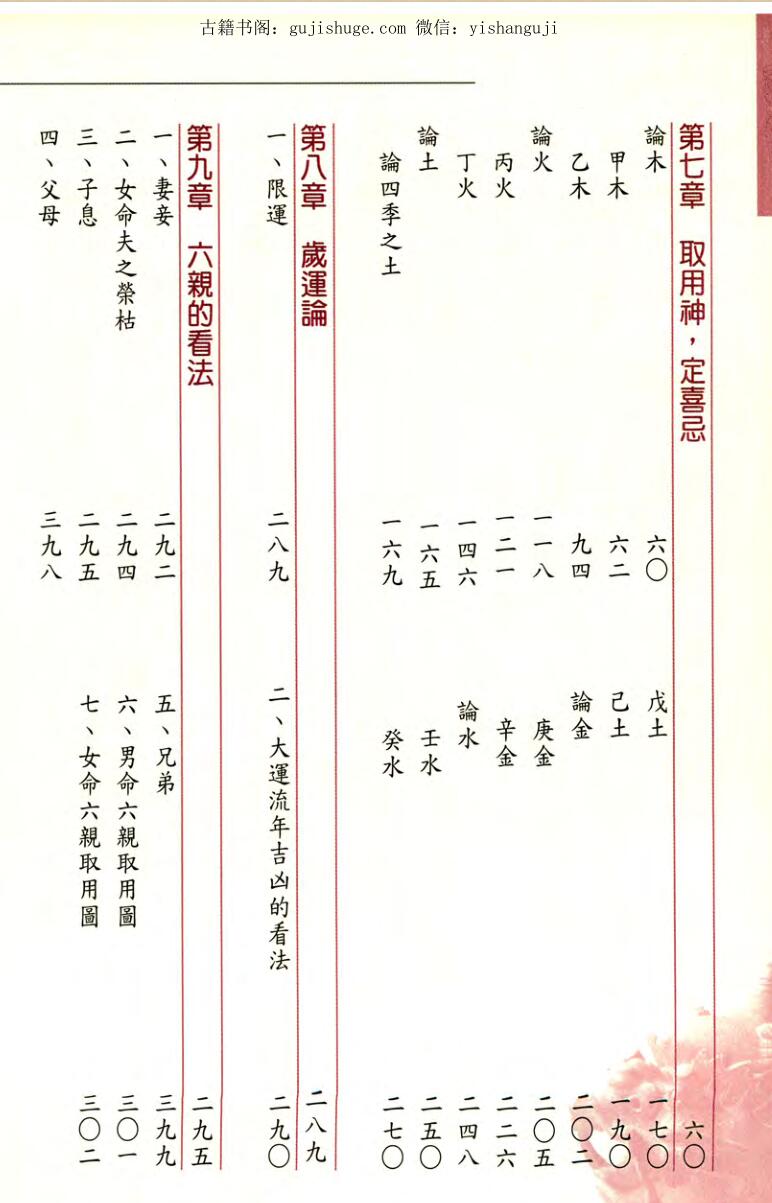 古籍书阁：gujishuge.com 微信：yishanguji
第七章 取用神，定喜忌 六〇
論木 六〇
甲木 六二
乙木 九四
論火 一一八
丙火 一二一
丁火 一四六
論土 一六五
論四季之土 一六九
戊土 一七〇
己土 一九〇
論金 二〇二
庚金 二〇五
辛金 二二六
論水 二四八
壬水 二五〇
癸水 二七〇
第八章 歲運論 二八九
一、限運 二八九
二、大運流年吉凶的看法 二九〇
第九章 六親的看法 二九五
一、妻妾 二九二
二、女命夫之榮枯 二九四
三、子息 二九五
四、父母 三九八
五、兄弟 三九九
六、男命六親取用圖 三〇一
七、女命六親取用圖 三〇二